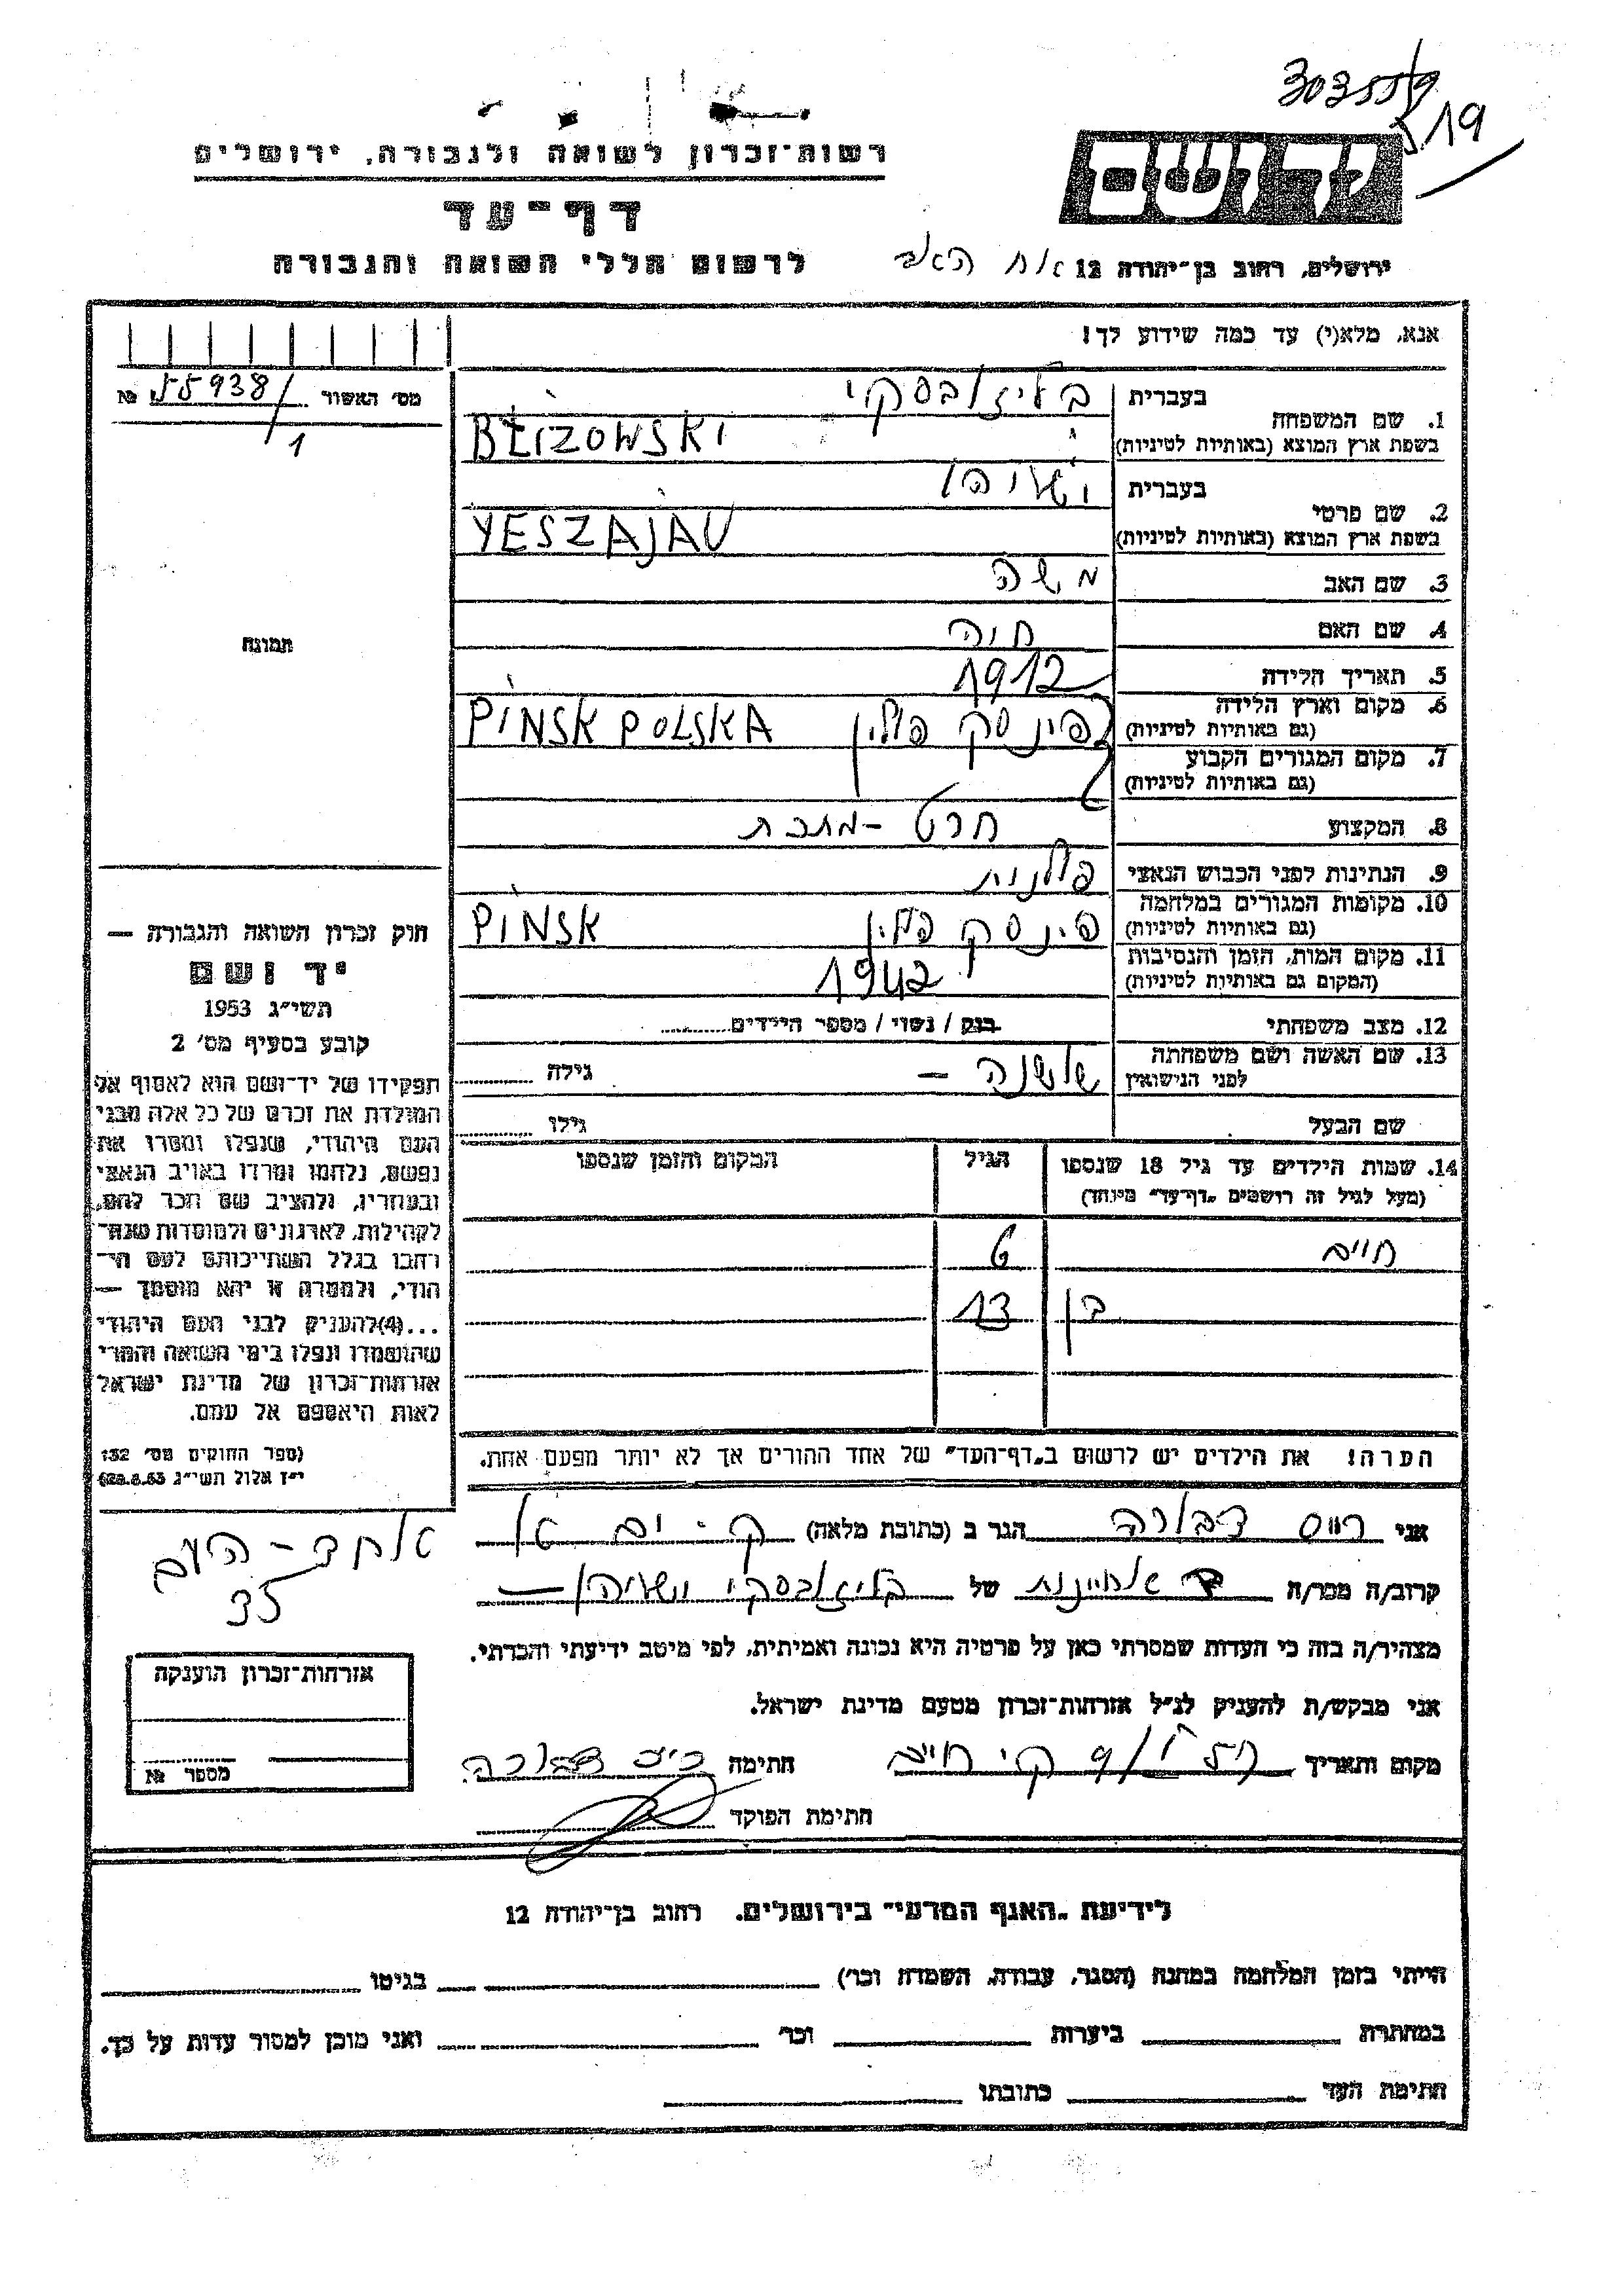 303559
519
רשות־זכרון לשואה ולגבורה, ירושלים
יד ושם
דף־עד
לרשום חללי השואה והגבורה
ירושלים, רחוב בן־יהודה 12
אנא, מלא(י) עד כמה שידוע לך!
מס׳ האשור 55938/1 №
תמונה
1. שם המשפחה בעברית בליזובסקי
בשפת ארץ המוצא (באותיות לטיניות) BŁIZOWSKI
2. שם פרטי בעברית ישעיהו
בשפת ארץ המוצא (באותיות לטיניות) YESZAJAU
3. שם האב משה
4. שם האם חיה
5. תאריך הלידה 1912
6. מקום וארץ הלידה (גם באותיות לטיניות) פינסק פולין PINSK POLSKA
7. מקום המגורים הקבוע (גם באותיות לטיניות)
8. המקצוע חרט - מתכת
9. הנתינות לפני הכבוש הנאצי פולנית
10. מקומות המגורים במלחמה (גם באותיות לטיניות) פינסק פולין PINSK
11. מקום המות, הזמן והנסיבות (המקום גם באותיות לטיניות) 1942
12. מצב משפחתי רווק / נשוי / מספר הילדים
13. שם האשה ושם משפחתה לפני הנישואין שושנה – גילה
שם הבעל גילו
14. שמות הילדים עד גיל 18 שנספו הגיל המקום והזמן שנספו
(מעל לגיל זה רושמים „דף־עד״ מיוחד)
חיים 6
בן 13
הערה! את הילדים יש לרשום ב„דף־העד״ של אחד ההורים אך לא יותר מפעם אחת.
חוק זכרון השואה והגבורה —
יד ושם
תשי״ג 1953
קובע בסעיף מס׳ 2
תפקידו של יד־ושם הוא לאסוף אל
המולדת את זכרם של כל אלה מבני
העם היהודי, שנפלו ומסרו את
נפשם, נלחמו ומרדו באויב הנאצי
ובעוזריו, ולהציב שם וזכר להם,
לקהילות, לארגונים ולמוסדות שנח־
רבו בגלל השתייכותם לעם הי־
הודי, ולמטרה זו יהא מוסמך —
...(4) להעניק לבני העם היהודי
שהושמדו ונפלו בימי השואה והמרי
אזרחות־זכרון של מדינת ישראל
לאות היאספם אל עמם.
(ספר החוקים מס׳ 132
י״ז אלול תשי״ג 28.8.53)
אני רייס דבורה הגר ב (כתובת מלאה) ק - ים
אחד - העם
35
קרוב/ה מכר/ה אחיינות של בליזובסקי ישעיהו
מצהיר/ה בזה כי העדות שמסרתי כאן על פרטיה היא נכונה ואמיתית, לפי מיטב ידיעתי והכרתי.
אני מבקש/ת להעניק לנ״ל אזרחות־זכרון מטעם מדינת ישראל.
מקום ותאריך קי חיים חתימה רייס דבורה
חתימת הפוקד
אזרחות־זכרון הוענקה
מספר №
לידיעת „האגף המדעי״ בירושלים, רחוב בן־יהודה 12
הייתי בזמן המלחמה במחנה (הסגר, עבודה, השמדה וכו׳) בגיטו
במחתרת ביערות וכו׳ ואני מוכן למסור עדות על כך.
חתימת העד כתובתו